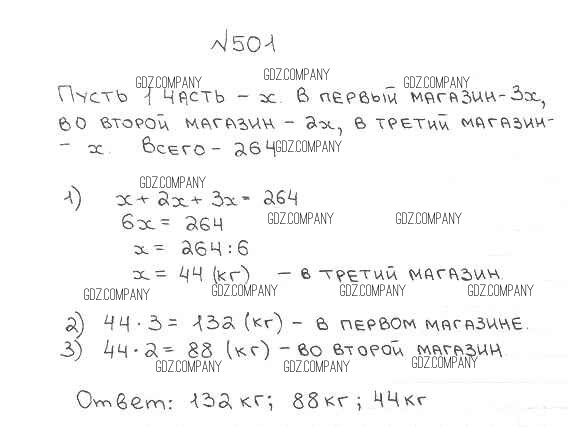 №501
GDZ.COMPANY GDZ.COMPANY GDZ.COMPANY
Пусть 1 часть - х. В первый магазин - 3х,
во второй магазин - 2х, в третий магазин -
- х. Всего - 264 GDZ.COMPANY
GDZ.COMPANY
1) х + 2х + 3х = 264
6х = 264 GDZ.COMPANY GDZ.COMPANY
х = 264 : 6
х = 44 (кг) - в третий магазин.
GDZ.COMPANY GDZ.COMPANY GDZ.COMPANY GDZ.COMPANY
2) 44 · 3 = 132 (кг) - в первом магазине.
3) 44 · 2 = 88 (кг) - во второй магазин
GDZ.COMPANY GDZ.COMPANY GDZ.COMPANY
Ответ: 132 кг; 88 кг; 44 кг